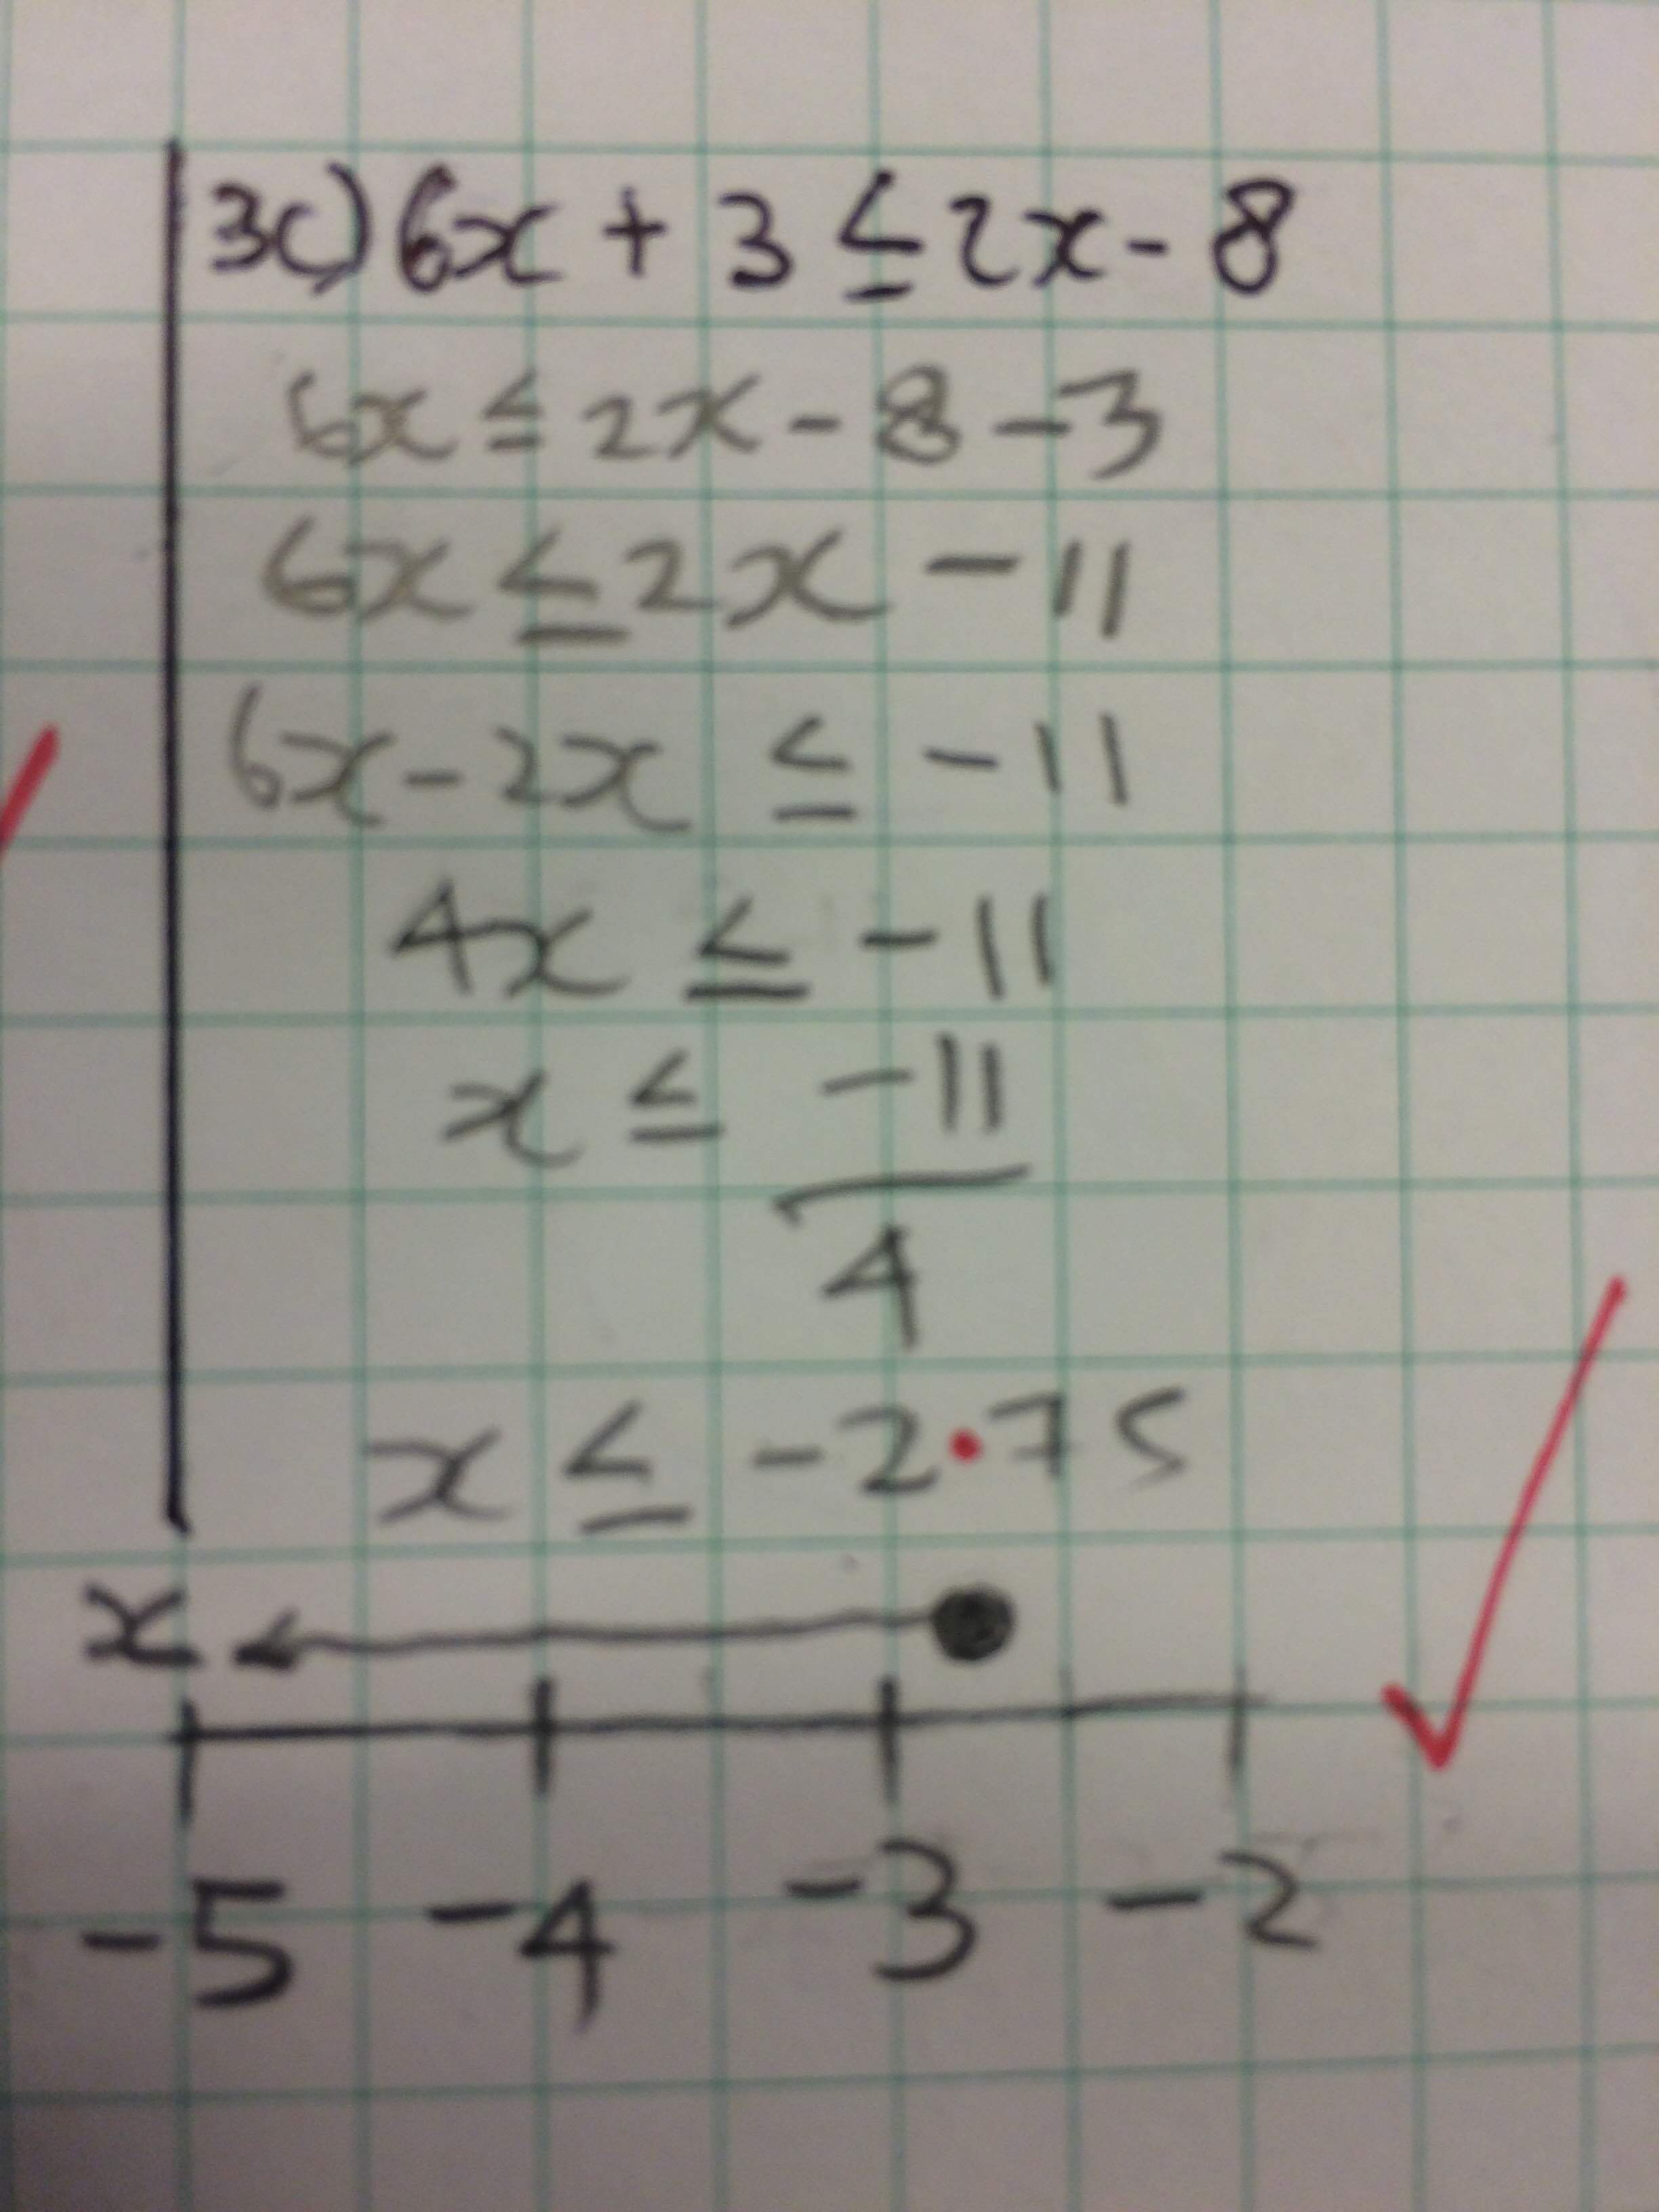 3c) 6x + 3 ≤ 2x - 8
6x ≤ 2x - 8 - 3
6x ≤ 2x - 11
6x - 2x ≤ - 11
4x ≤ - 11
x ≤ -11
4
x ≤ -2.75
x
-5 -4 -3 -2